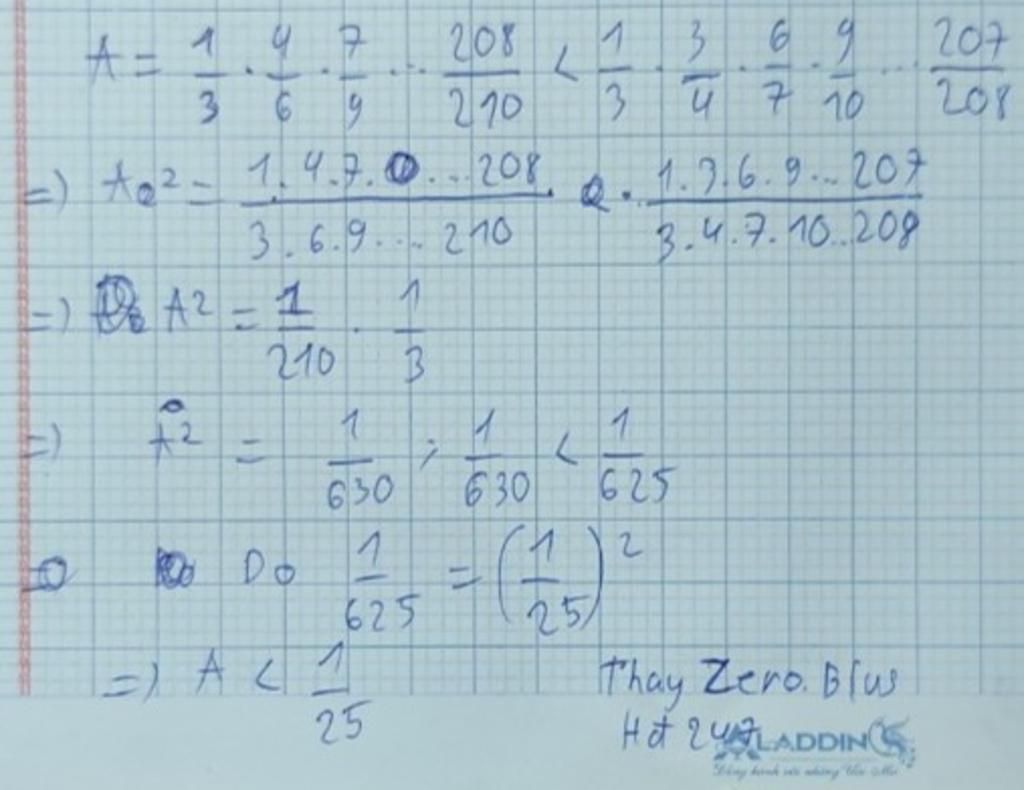 A = 1/3 . 4/6 . 7/9 ... 208/210 < 1/3 . 3/4 . 6/7 . 9/10 ... 207/208
=) A² = 1.4.7....208/3.6.9....210 . 1.3.6.9...207/3.4.7.10..208
=) A² = 1/210 . 1/3
=) A² = 1/630 ; 1/630 < 1/625
Do 1/625 = (1/25)²
=) A < 1/25
Thay Zero. Blus
Hot 247
ALADDIN